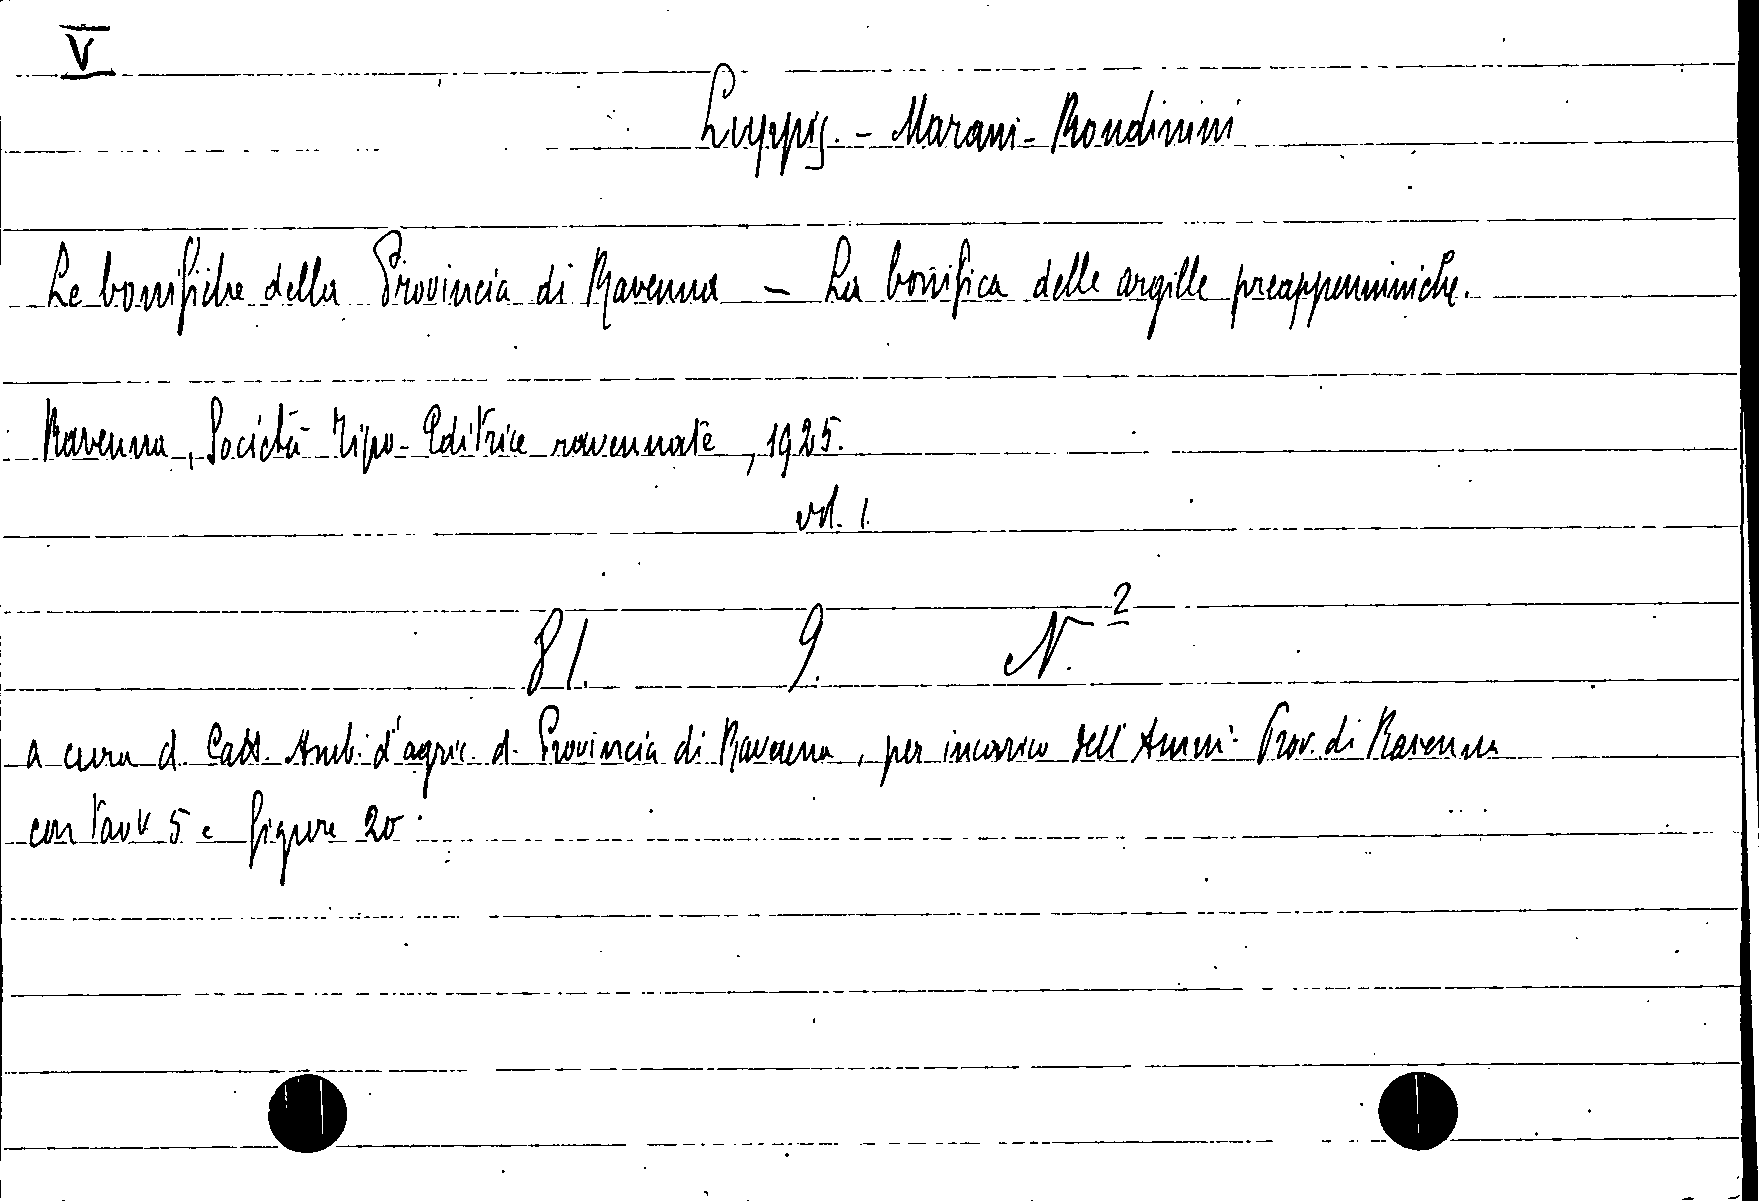 V
Luppis. - Marani - Rondinini
Le bonifiche della Provincia di Ravenna - La bonifica delle argille preappenniniche.
Ravenna, Società Tipo-Editrice ravennate, 1925.
vol. 1.
81. 9. N.2
a cura d. Catt. Amb. d'agric. d. Provincia di Ravenna, per incarico dell'Ammi. Prov. di Ravenna
con tavv 5 e figure 20.